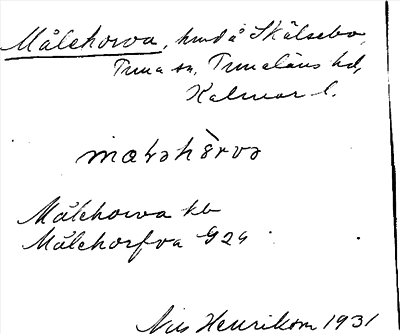 Målehorva, hmd å Skälsebo,
Tuna sn, Tunaläns hd,
Kalmar l.
Målehorva kb
Målehorfva G 24
Nils Henrikson 1931